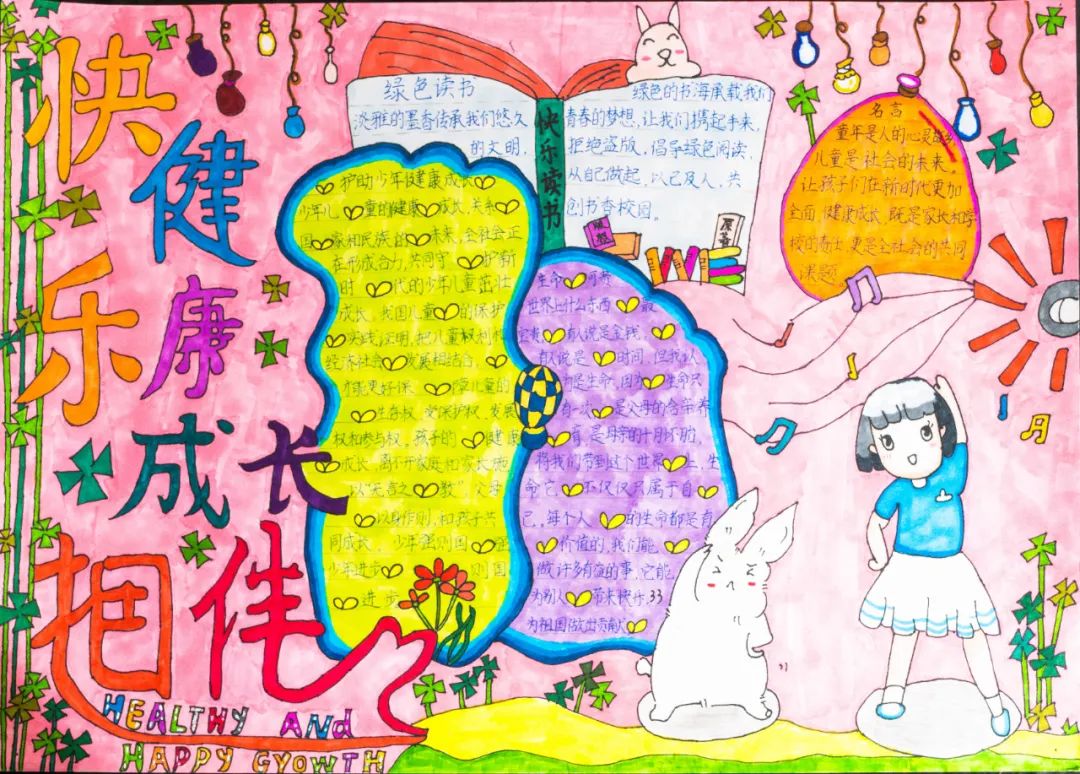 快
健
乐
康
成
长
相
伴
HEALTHY AND
HAPPY GYOWTH
绿色读书
淡雅的墨香传承我们悠久
的文明,
快乐读书
绿色的书海承载我们
青春的梦想,让我们携起手来,
拒绝盗版,倡导绿色阅读,
从自己做起,以己及人,共
创书香校园。
名言
童年是人的心灵故乡
儿童是社会的未来。
让孩子们在新时代更加
全面、健康成长,既是家长和学
校的责任,更是全社会的共同
课题。
护助少年健康成长
少年儿童的健康成长,关系
国家和民族的未来,全社会正
在形成合力,共同守护新
时代的少年儿童茁壮
成长。我国儿童的保护
实践证明,把儿童权利和
经济社会发展相结合,
才能更好保障儿童的
生存权、受保护权、发展
权和参与权。孩子的健康
成长,离不开家庭和家长施
以“无言之教”,父母
以身作则,和孩子共
同成长。少年强则国强
少年进步则国
进步
生命何劳
世界上什么东西最
宝贵,有人说是金钱,
有人说是时间,但我认
为是生命,因为生命只
有一次,是父母的含辛养
育,是母亲的十月怀胎,
将我们带到这个世界上,生
命它不仅仅只属于自
己,每个人的生命都是有
价值的,我们能
做许多有益的事,它能
为别人带来快乐,33
为祖国做出贡献